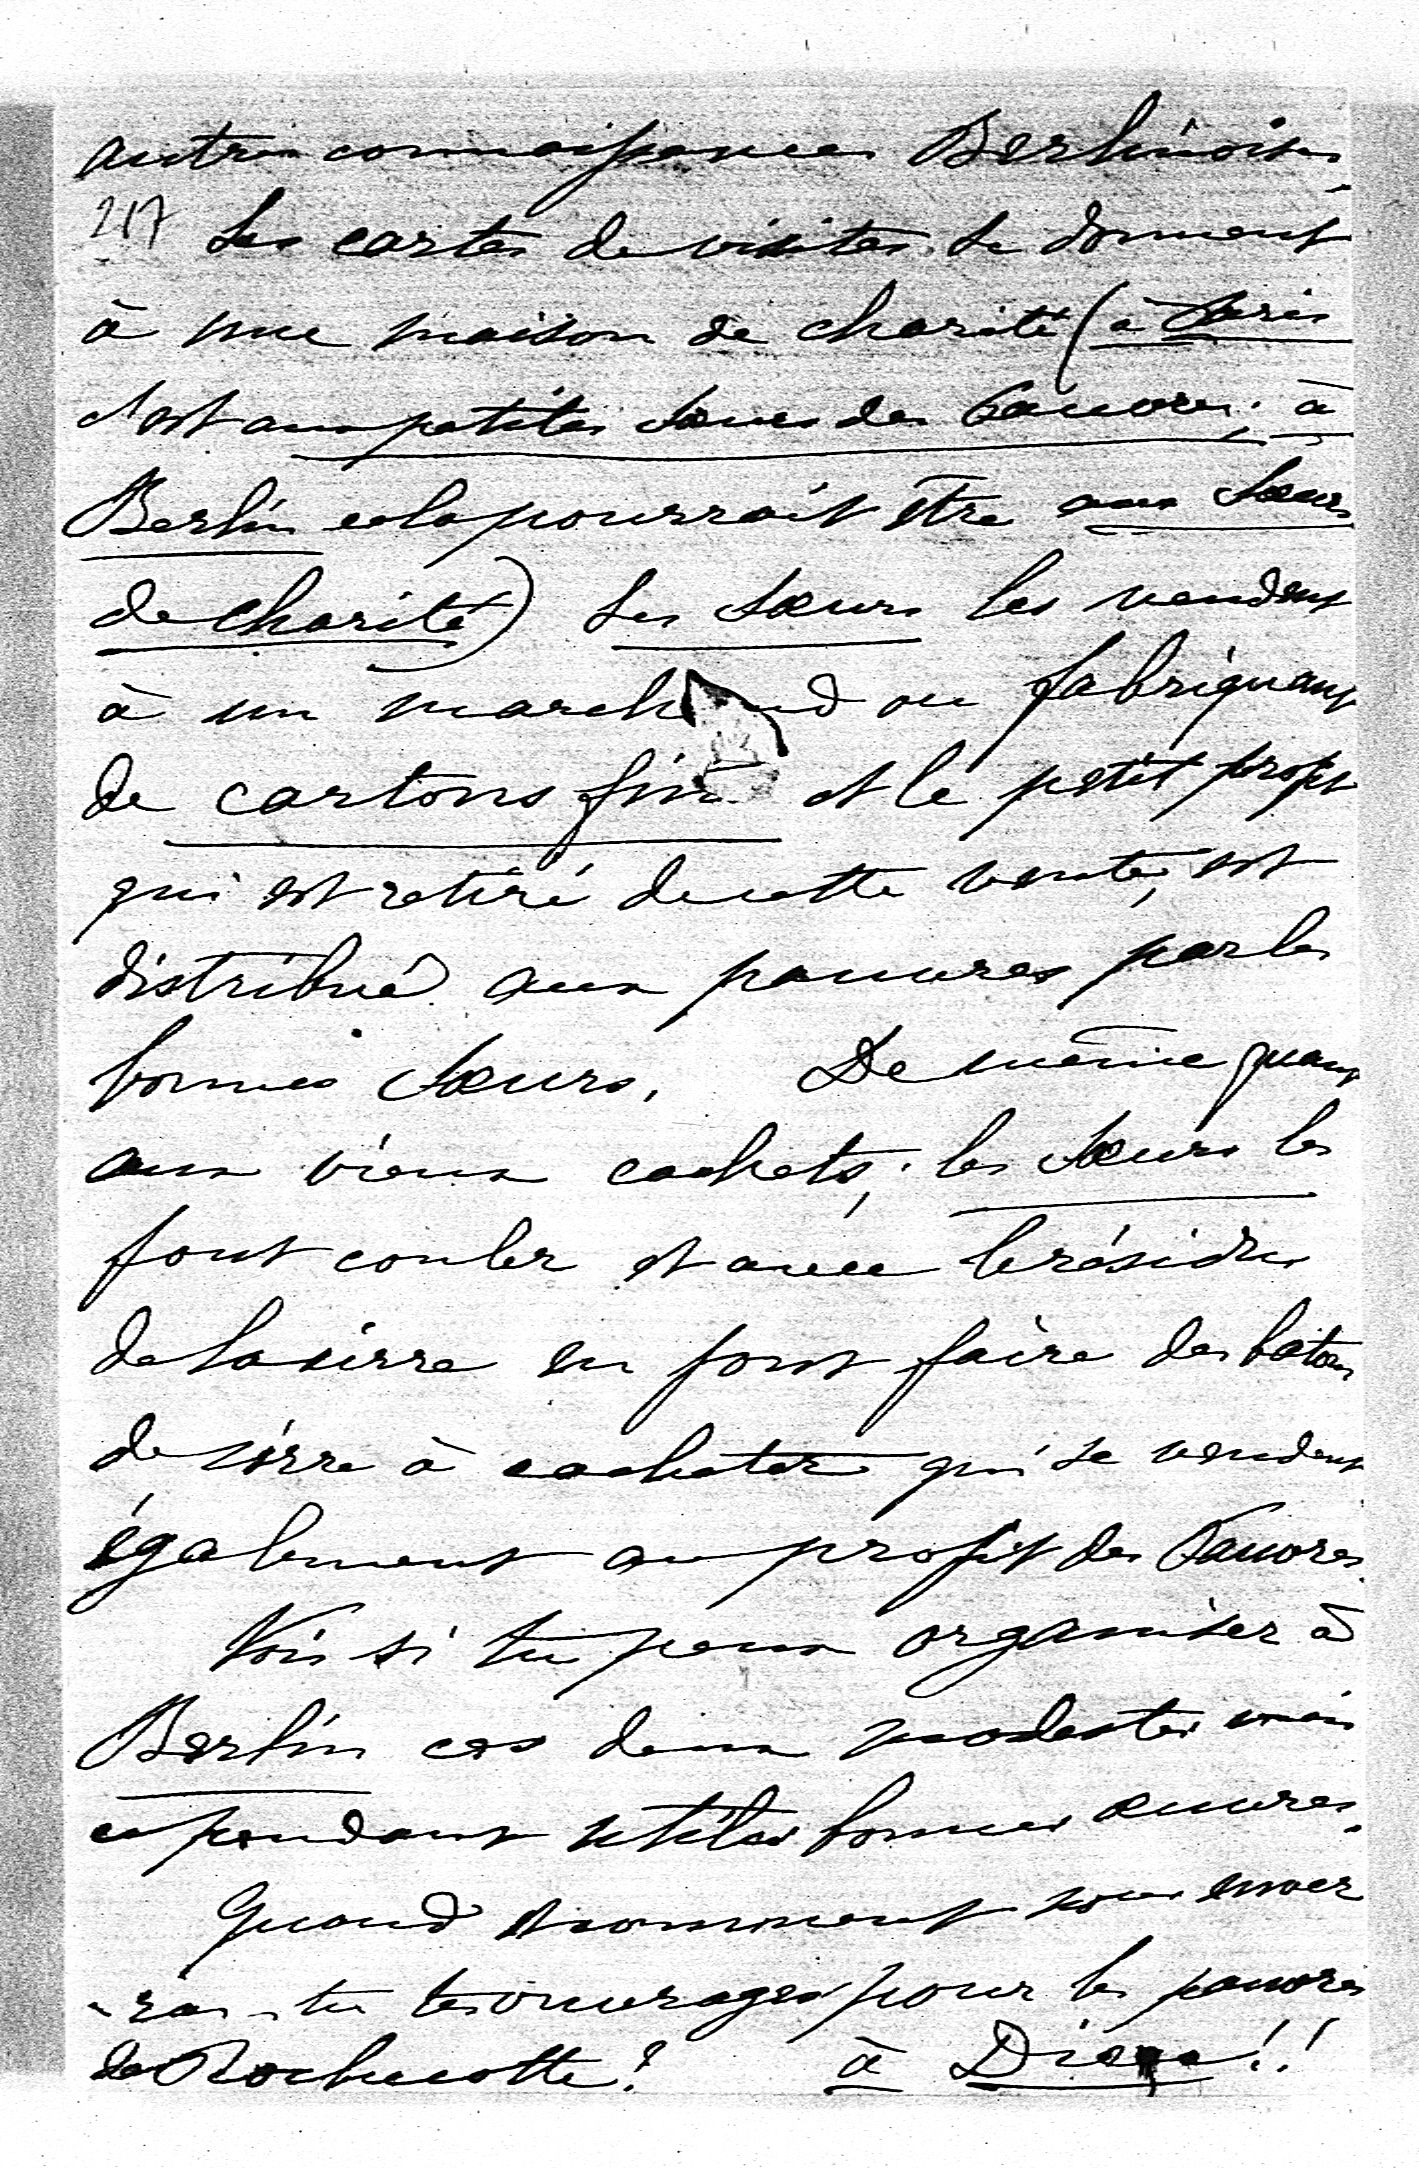 autres connaissances Berlinoises.
217 Les cartes de visites se donnent
à une maison de charité (à Paris
c'est aux petites Sœurs des Pauvres; à
Berlin cela pourrait être aux Sœurs
de charité) Les Sœurs les vendent
à un marchand ou fabriquant
de cartons fins et le petit profit
qui est retiré de cette vente, est
distribué aux pauvres par les
bonnes Sœurs. De même quant
aux vieux cachets; les Sœurs les
font couler et avec le résidu
de la cirre en font faire des batons
de cirre à cacheter qui se vendent
également au profit des Pauvres.
Vois si tu peux organiser à
Berlin ces deux modestes mais
cependant utiles bonnes œuvres.
Quand et comment nous enver
-ras-tu tes ouvrages pour les pauvres
de Rochecotte? à Dieu!!